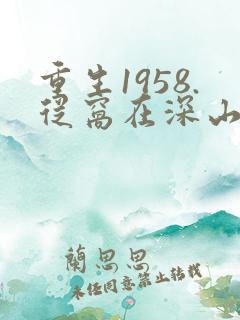 重生1958.
從窩在深山
蘭思思
未经同意禁止转载